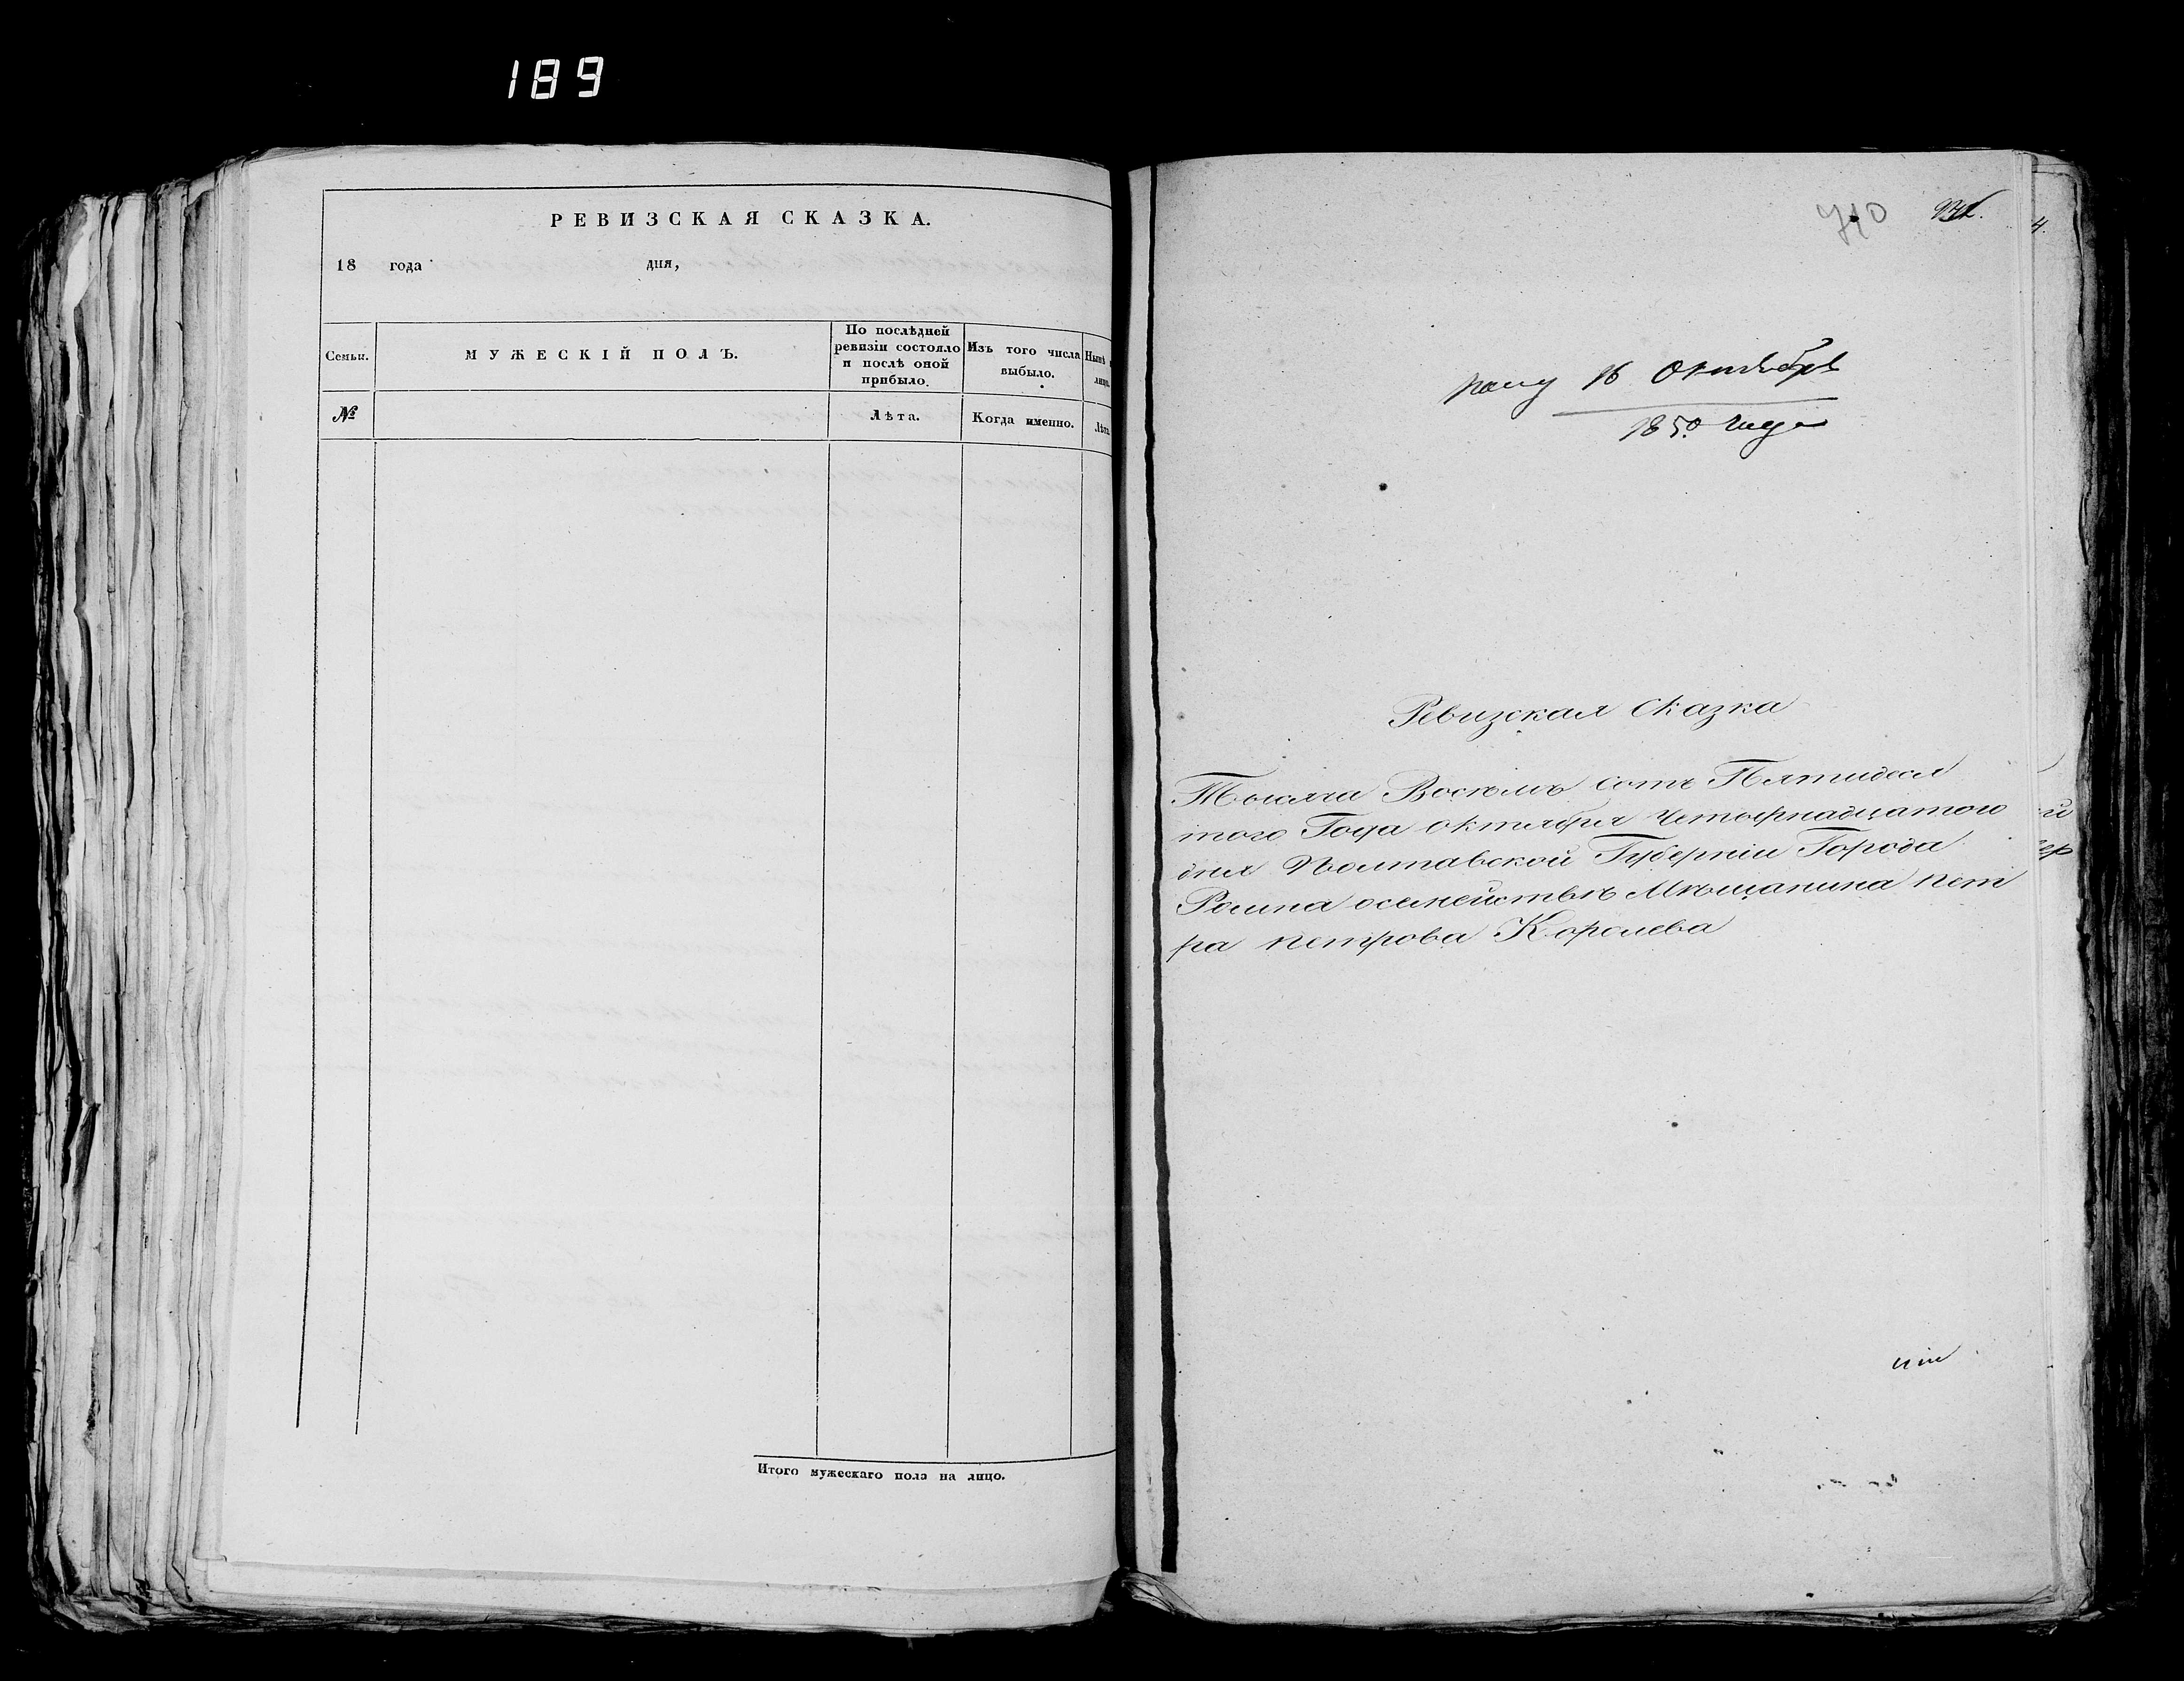 189
РЕВИЗСКАЯ СКАЗКА.
18 года дня,
Семьи.
МУЖЕСКІЙ ПОЛЪ.
По послѣдней
ревизіи состояло
и послѣ оной
прибыло.
Изъ того числа
выбыло.
Нынѣ
лицо.
№
Лѣта.
Когда именно.
Лѣта
Итого мужескаго пола на лицо.
740
16 Октября
1850 года
Ревизская Сказка
Тысяча Восемъ сотъ Пятидеся
того Года октября четырнадцатого
дня Полтавской Губерніи Города
Ромна осемействѣ Мѣщанина пет
ра петрова Королева